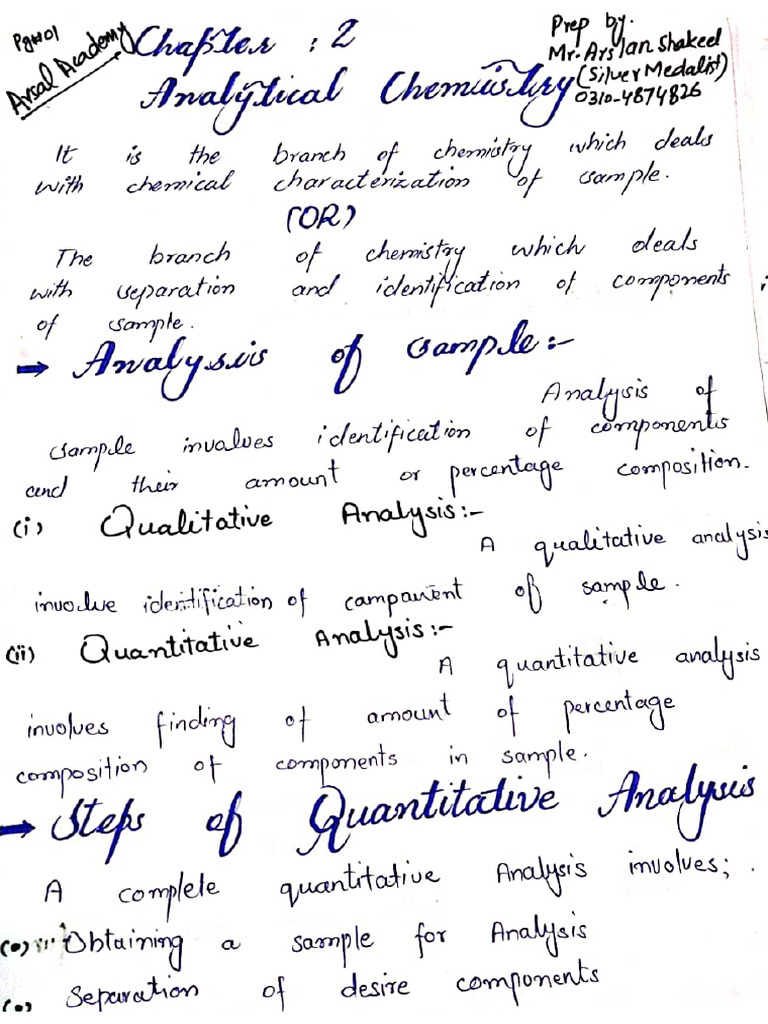 Pg#01
Arsal Academy
Chapter : 2
Prep by.
Mr. Arslan Shakeel
(Silver Medalist)
0310-4874826
Analytical Chemistry
It is the branch of chemistry which deals
with chemical characterization of sample.
(OR)
The branch of chemistry which deals
with separation and identification of components
of sample.
→ Analysis of sample:-
Analysis of
sample involves identification of components
and their amount or percentage composition.
(i) Qualitative Analysis:-
A qualitative analysis
involve identification of component of sample.
(ii) Quantitative Analysis:-
A quantitative analysis
involves finding of amount of percentage
composition of components in sample.
→ Steps of Quantitative Analysis
A complete quantitative Analysis involves;
(•) Obtaining a sample for Analysis
(•) Separation of desire components